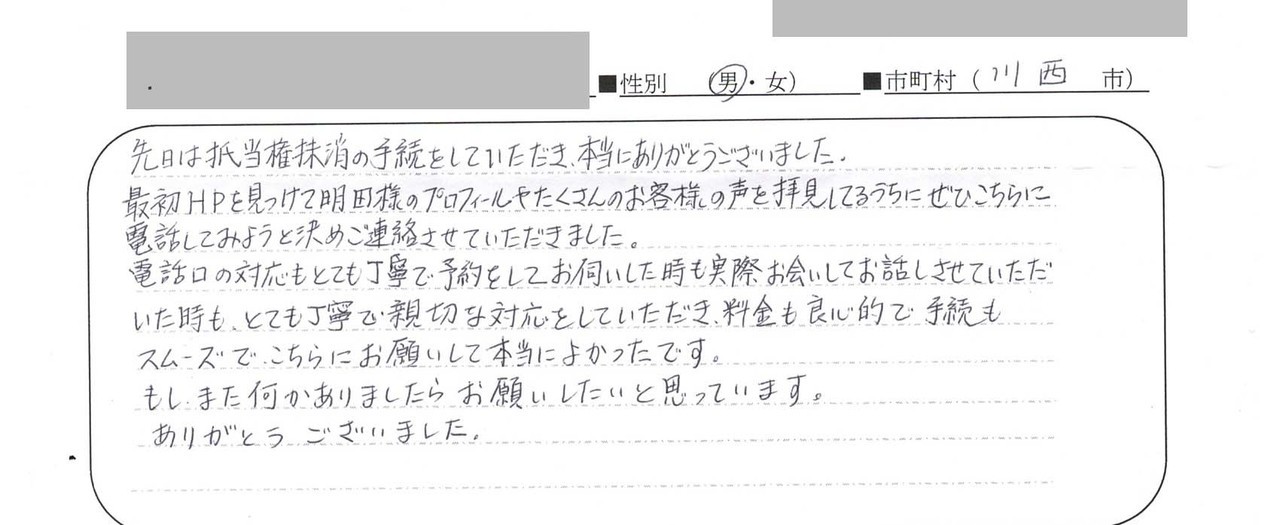 ■性別 (男・女) ■市町村(川西 市)
先日は抵当権抹消の手続をしていただき、本当にありがとうございました。
最初HPを見つけて明田様のプロフィールやたくさんのお客様の声を拝見してるうちにぜひこちらに
電話してみようと決めご連絡させていただきました。
電話口の対応もとても丁寧で予約をしてお伺いした時も実際お会いしてお話しさせていただ
いた時も、とても丁寧で親切な対応をしていただき、料金も良心的で手続も
スムーズで、こちらにお願いして本当によかったです。
もし、また何かありましたらお願いしたいと思っています。
ありがとうございました。